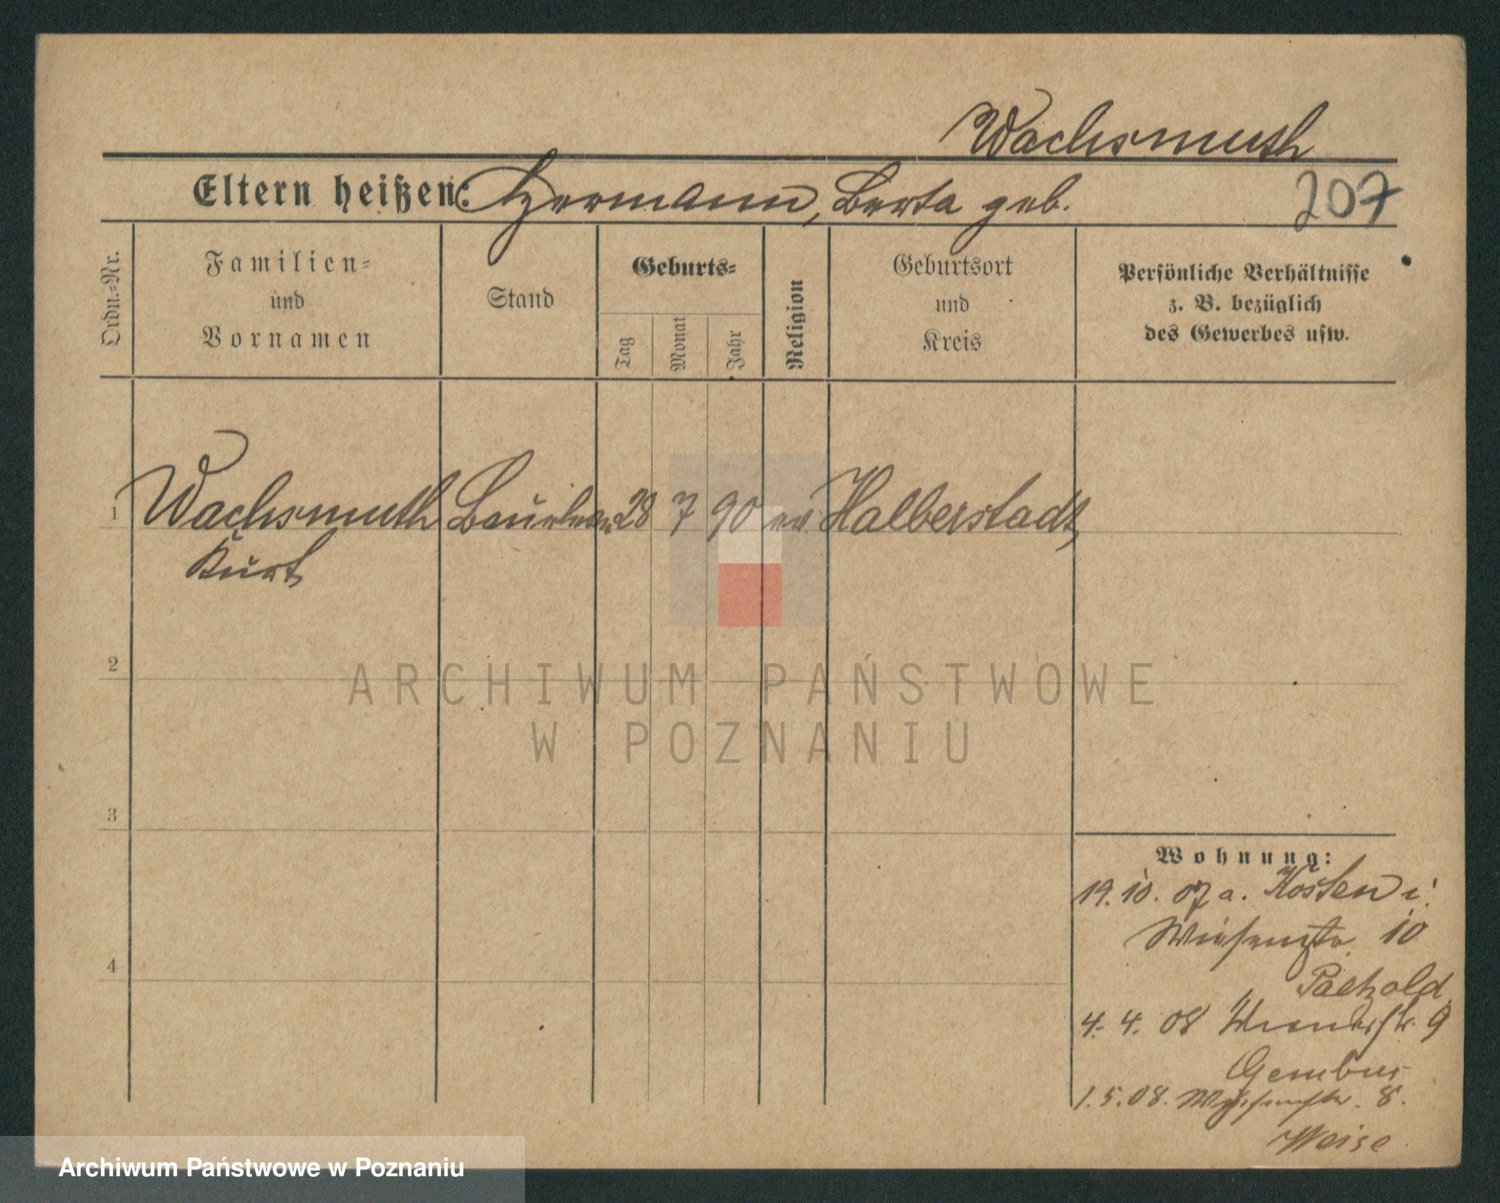 Wachsmuth
Eltern heißen: Hermann, Berta geb.
207
Ordn.=Nr.
Familien=
und
Vornamen
Stand
Geburts=
Tag
Monat
Jahr
Religion
Geburtsort
und
Kreis
Persönliche Verhältnisse
z. B. bezüglich
des Gewerbes usw.
1 Wachsmuth 28 7 90 ev Halberstadt
Kurt
2
ARCHIWUM PAŃSTWOWE
W POZNANIU
3
4
Wohnung:
19. 10. 07 a. Kosten i.
Wiesenstr. 10
Paetzold
4. 4. 08 9
Gembus
1. 5. 08. 8.
Weise
Archiwum Państwowe w Poznaniu